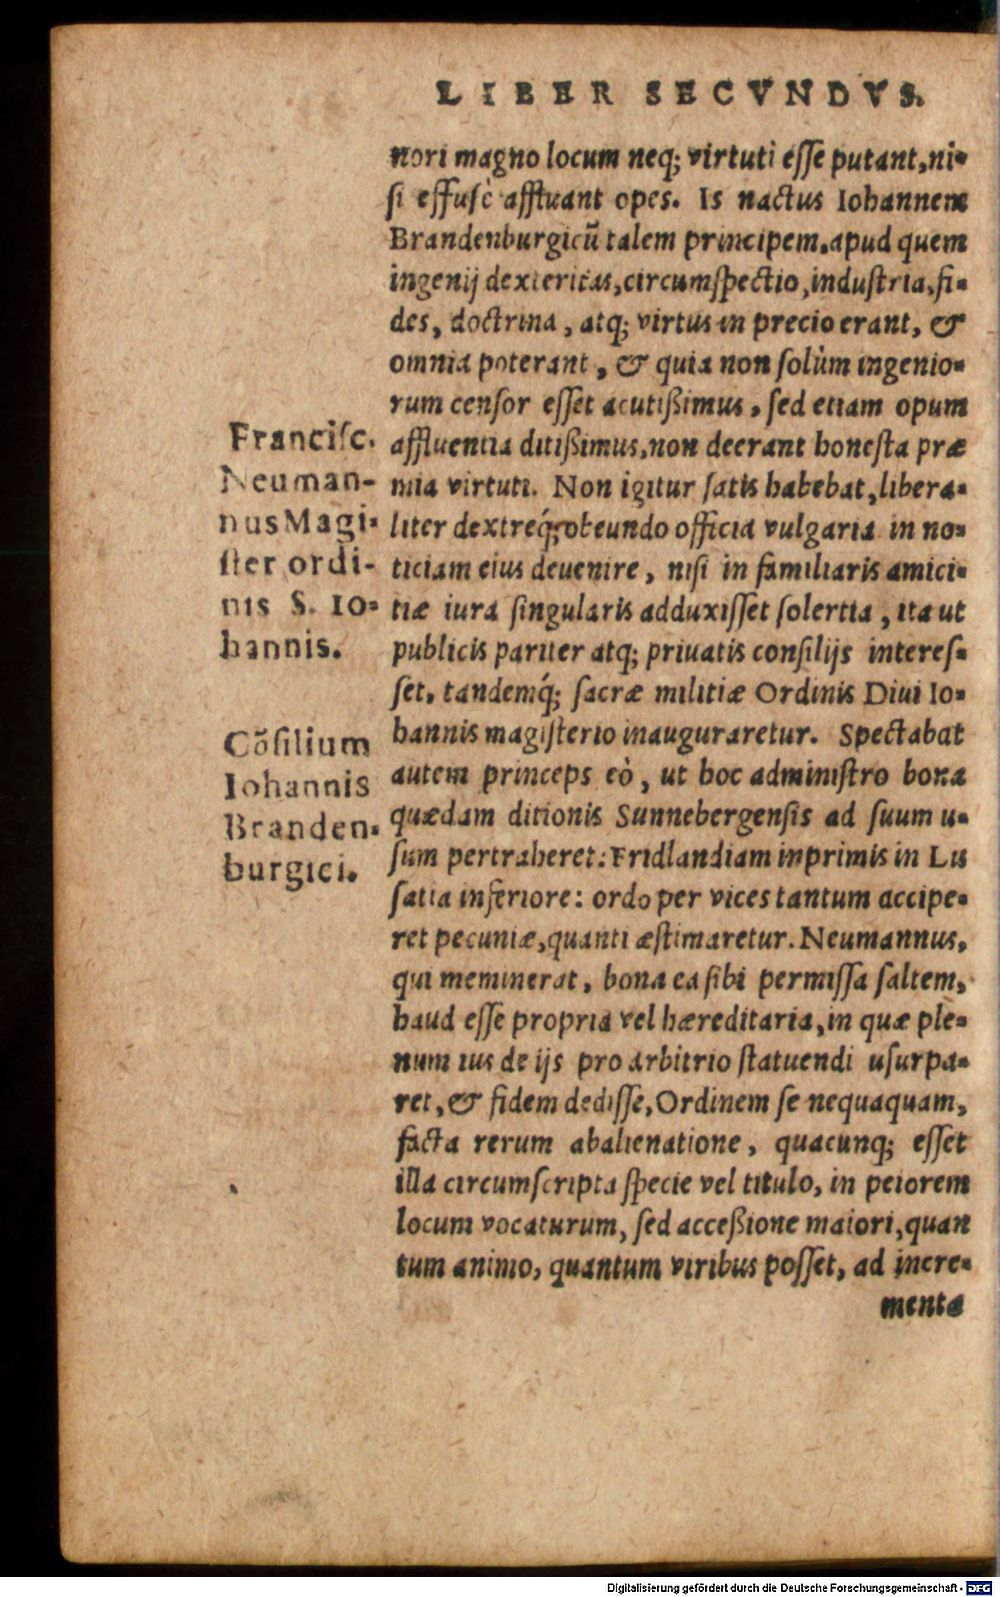 LIBER SECVNDVS.
nori magno locum neq; virtuti eſſe putant, ni-
ſi effuſè affluant opes. Is nactus Iohannem
Brandenburgicũ talem principem, apud quem
ingenij dexteritas, circumſpectio, induſtria, fi-
des, doctrina, atq; virtus in precio erant, &
omnia poterant, & quia non ſolùm ingenio-
rum cenſor eſſet acutißimus, ſed etiam opum
affluentia ditißimus, non deerant honeſta præ
mia virtuti. Non igitur ſatis habebat, libera-
liter dextreq́; obeundo officia vulgaria in no-
ticiam eius deuenire, niſi in familiaris amici-
tiæ iura ſingularis adduxiſſet ſolertia, ita ut
publicis pariter atq; priuatis conſilijs intereſ-
ſet, tandemq́; ſacræ militiæ Ordinis Diui Io-
hannis magiſterio inauguraretur. Spectabat
autem princeps eò, ut hoc adminiſtro bona
quædam ditionis Sunnebergenſis ad ſuum u-
ſum pertraheret: Fridlandiam inprimis in Lu
ſatia inferiore: ordo per vices tantum accipe-
ret pecuniæ, quanti æſtimaretur. Neumannus,
qui meminerat, bona ea ſibi permiſſa ſaltem,
haud eſſe propria vel hæreditaria, in quæ ple-
num ius de ijs pro arbitrio ſtatuendi uſurpa-
ret, & fidem dediſſe, Ordinem ſe nequaquam,
facta rerum abalienatione, quacunq; eſſet
illa circumſcripta ſpecie vel titulo, in peiorem
locum vocaturum, ſed acceßione maiori, quan
tum animo, quantum viribus poſſet, ad incre-
menta
Franciſc.
Neuman-
nus Magi-
ſter ordi-
nis S. Io-
hannis.
Cõſilium
Iohannis
Branden-
burgici.
Digitalisierung gefördert durch die Deutsche Forschungsgemeinschaft - DFG